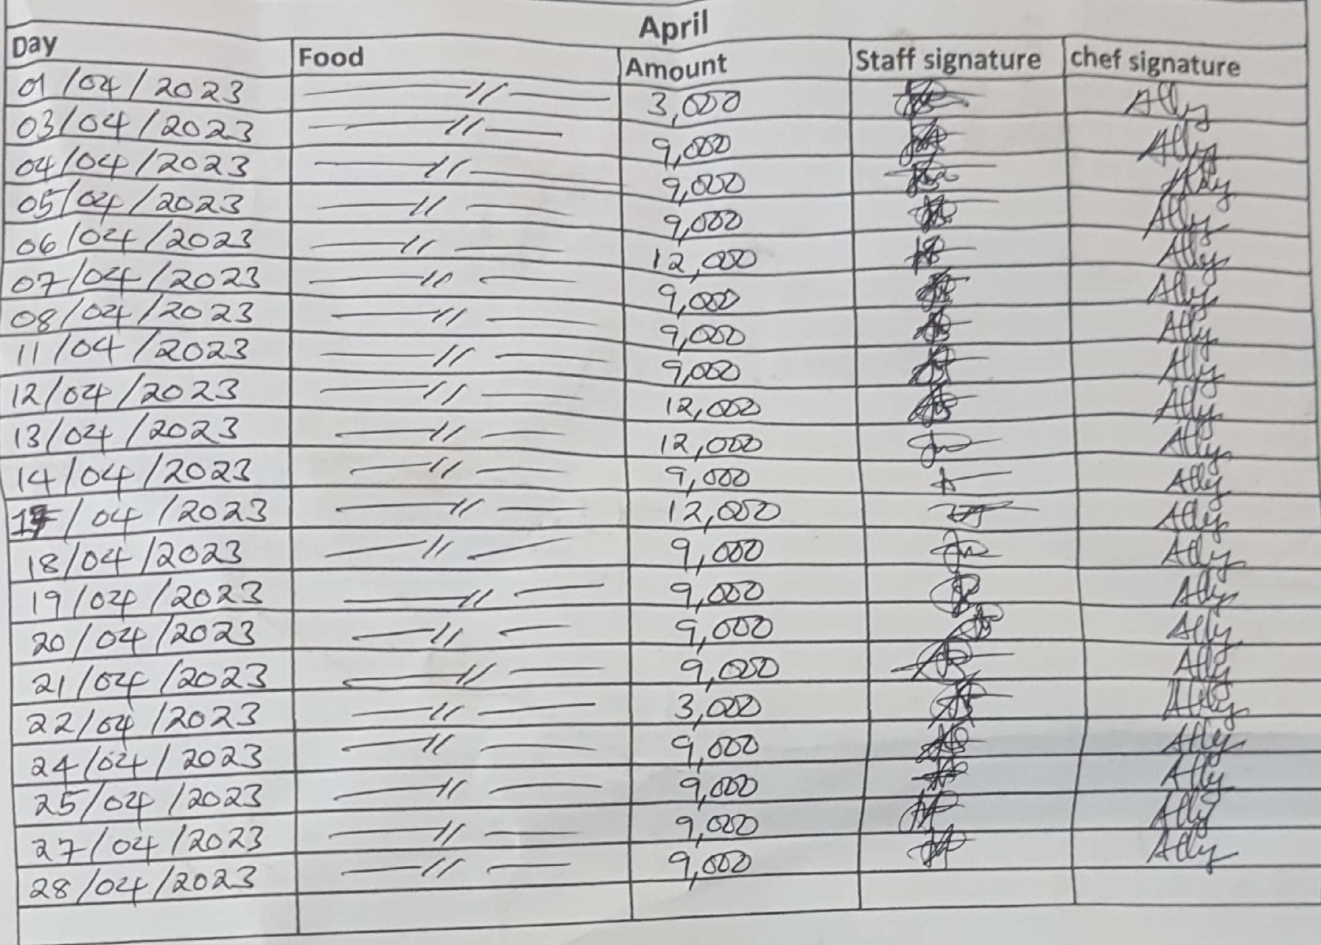 April
Day Food Amount Staff signature chef signature
01/04/2023 —— 〃 —— 3,000 Ally
03/04/2023 —— 〃 —— 9,000 Ally
04/04/2023 —— 〃 —— 9,000 Ally
05/04/2023 —— 〃 —— 9,000 Ally
06/04/2023 —— 〃 —— 12,000 Ally
07/04/2023 —— 〃 —— 9,000 Ally
08/04/2023 —— 〃 —— 9,000 Ally
11/04/2023 —— 〃 —— 9,000 Ally
12/04/2023 —— 〃 —— 12,000 Ally
13/04/2023 —— 〃 —— 12,000 Ally
14/04/2023 —— 〃 —— 9,000 Ally
/04/2023 —— 〃 —— 12,000 Ally
18/04/2023 —— 〃 —— 9,000 Ally
19/04/2023 —— 〃 —— 9,000 Ally
20/04/2023 —— 〃 —— 9,000 Ally
21/04/2023 —— 〃 —— 9,000 Ally
22/04/2023 —— 〃 —— 3,000 Ally
24/04/2023 —— 〃 —— 9,000 Ally
25/04/2023 —— 〃 —— 9,000 Ally
27/04/2023 —— 〃 —— 9,000 Ally
28/04/2023 —— 〃 —— 9,000 Ally